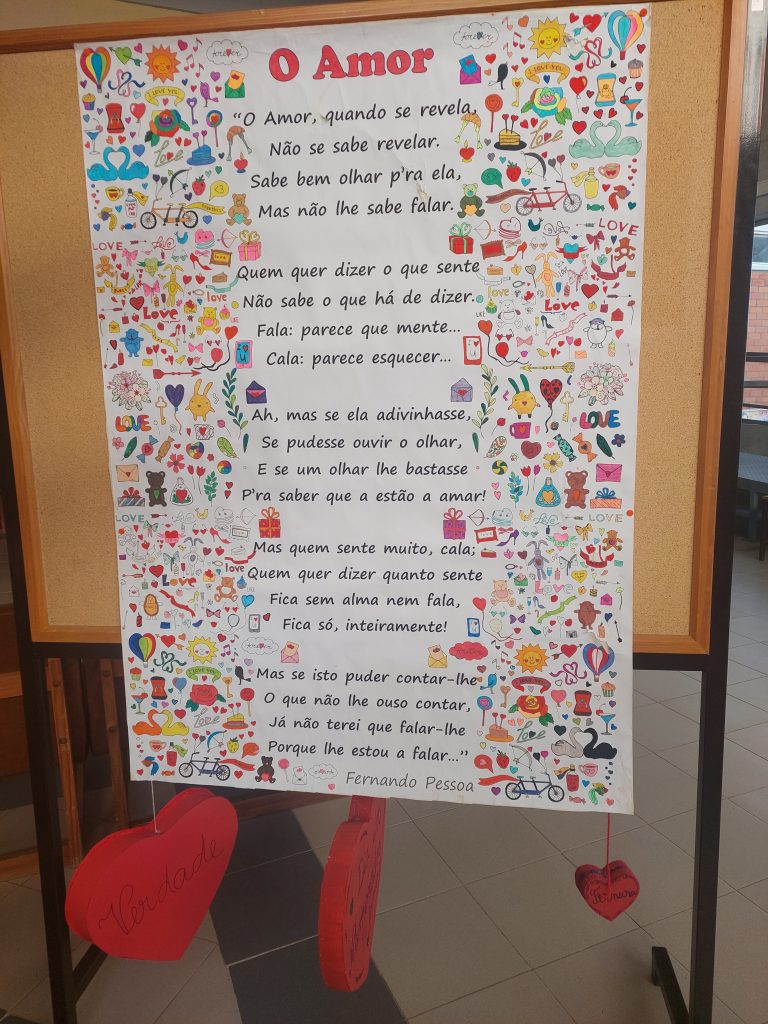 O Amor
"O Amor, quando se revela,
Não se sabe revelar.
Sabe bem olhar p'ra ela,
Mas não lhe sabe falar.
Quem quer dizer o que sente
Não sabe o que há de dizer.
Fala: parece que mente...
Cala: parece esquecer...
Ah, mas se ela adivinhasse,
Se pudesse ouvir o olhar,
E se um olhar lhe bastasse
P'ra saber que a estão a amar!
Mas quem sente muito, cala;
Quem quer dizer quanto sente
Fica sem alma nem fala,
Fica só, inteiramente!
Mas se isto puder contar-lhe
O que não lhe ouso contar,
Já não terei que falar-lhe
Porque lhe estou a falar..."
Fernando Pessoa
forever
forever
I LOVE YOU
I LOVE YOU
Love
Love
LOVE
LOVE
Love
love
love
LIKE
LIKE
U
U
LOVE
LOVE
LOVE
LOVE
Love
love
I LOVE YOU
I LOVE YOU
Love
Love
Verdade
Ternura